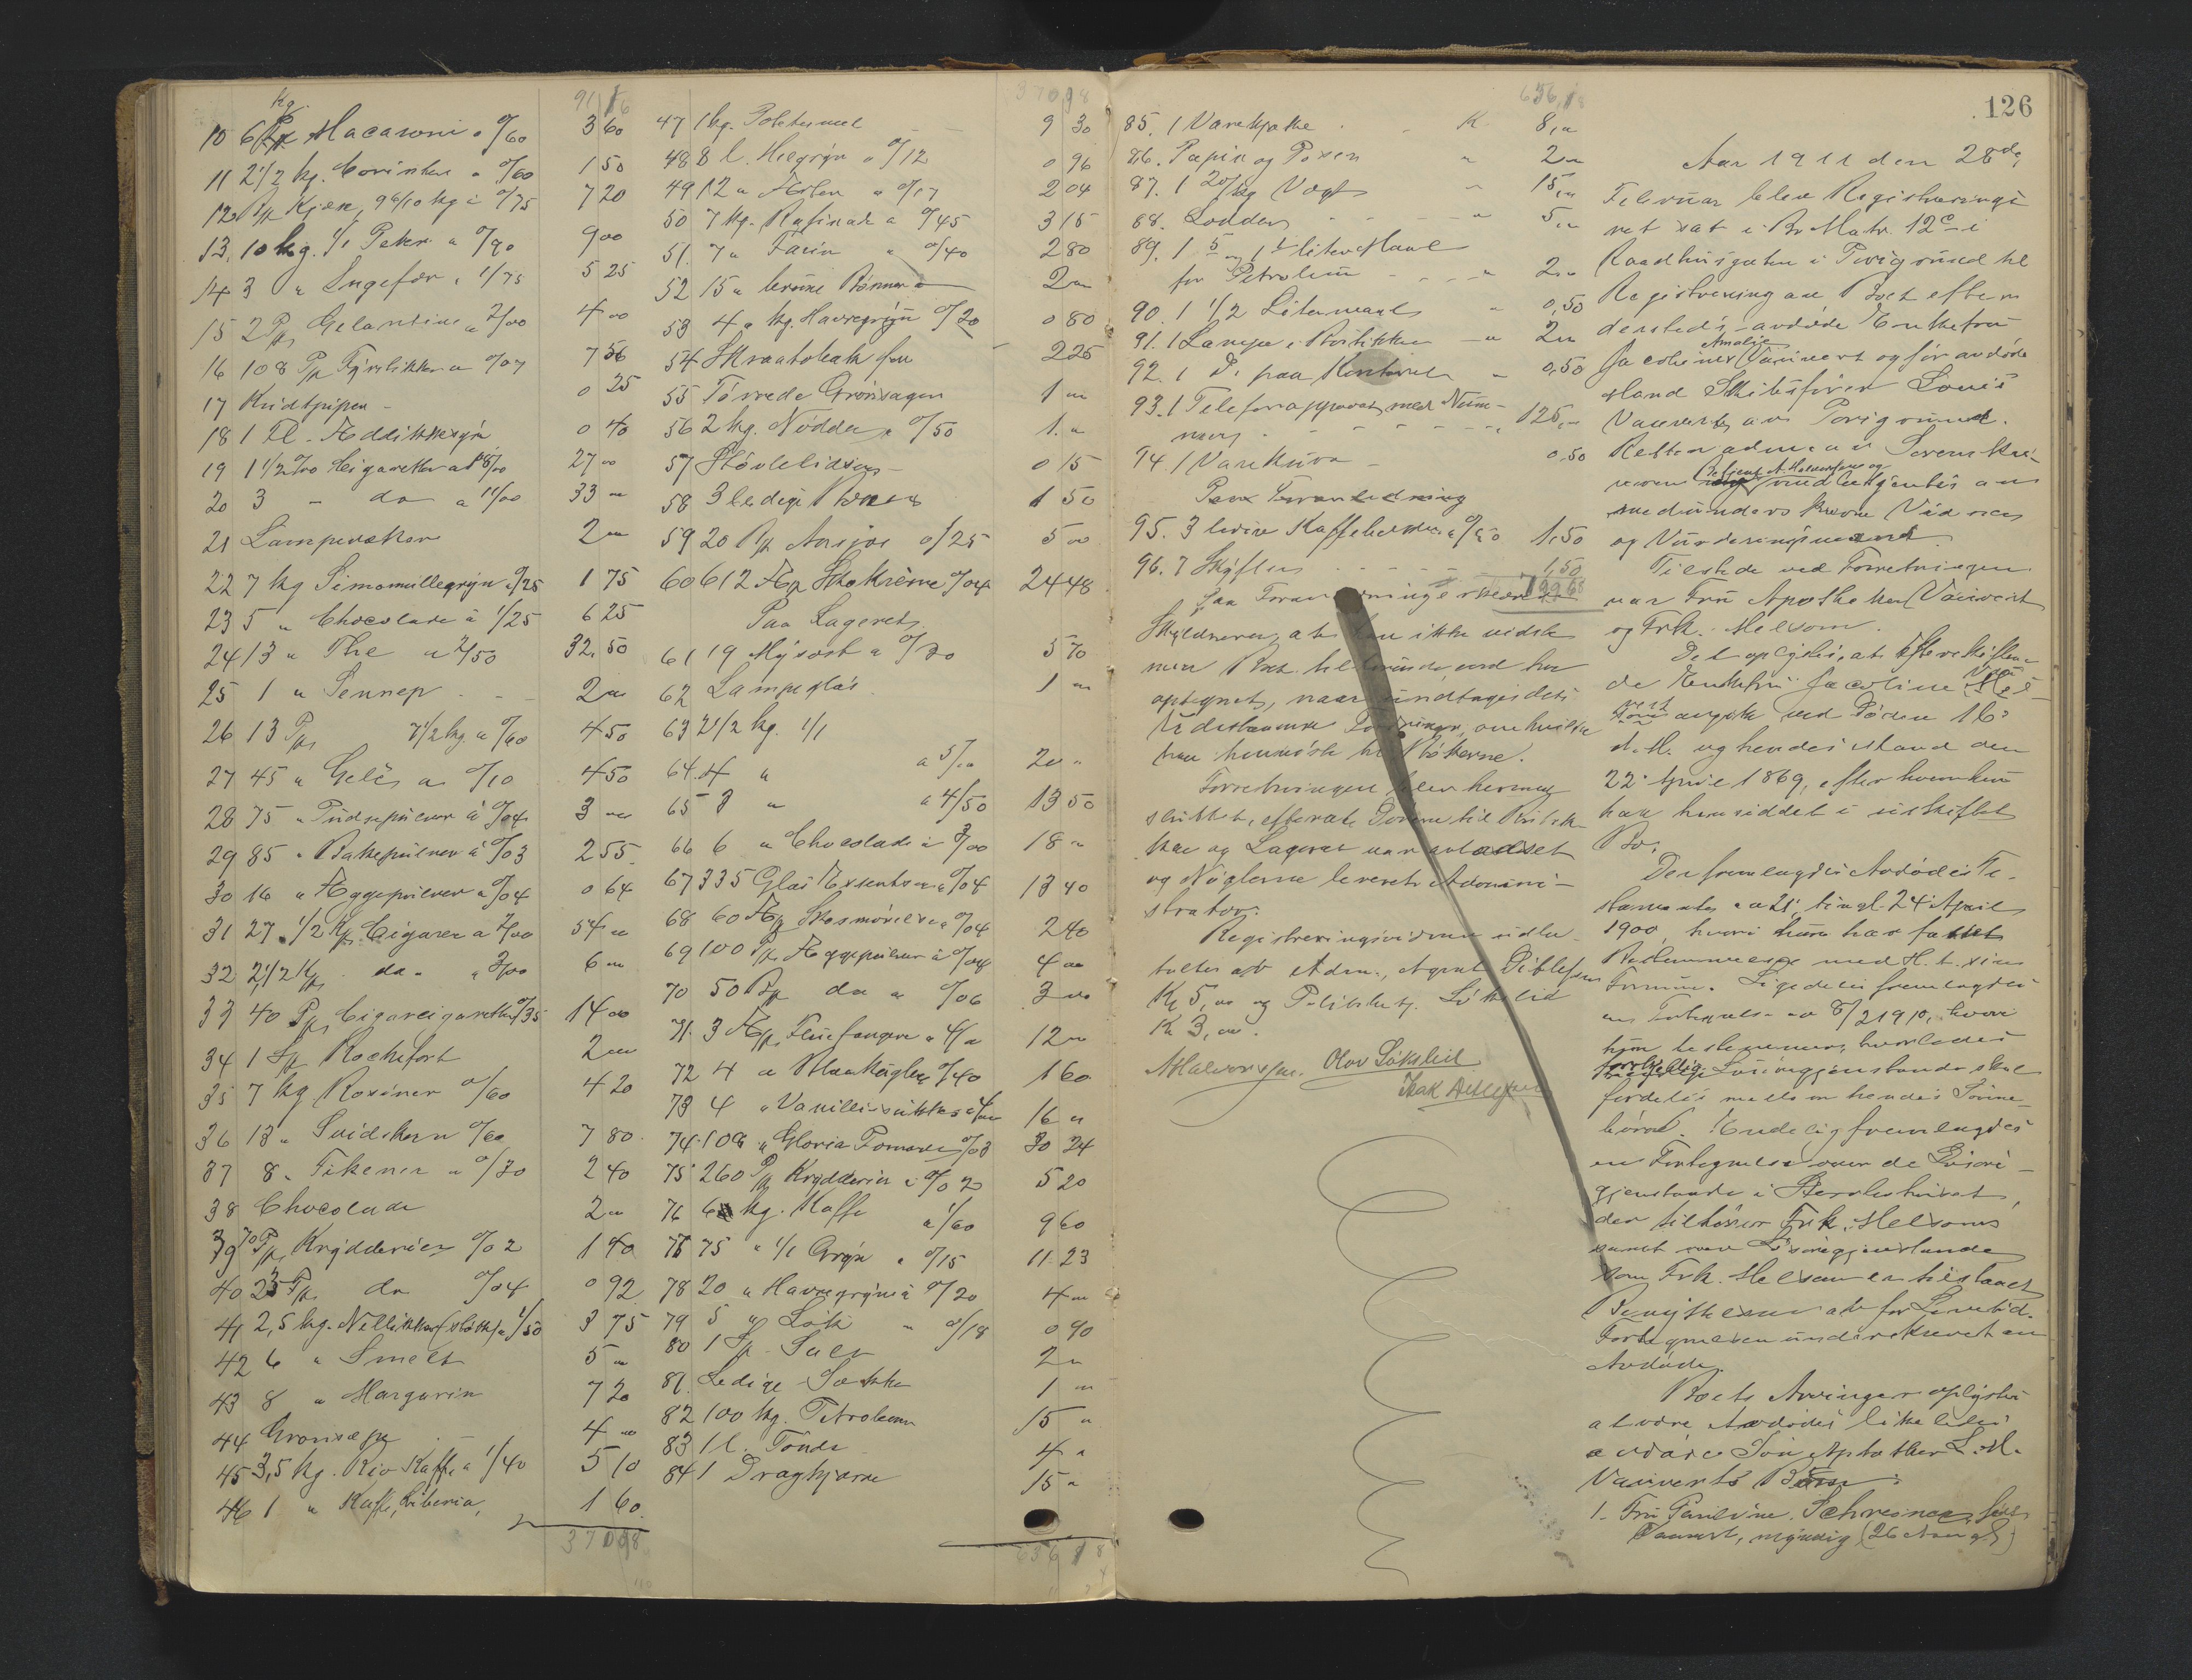 91 16
Kg.
10 6 Macaroni a 0/60 3 60
11 2 1/2 kg. Corinter a 0/60 1 50
12 Kjæx, 9 6/10 kg a 0/75 7 20
13. 10 kg. 1/1 Peber a 0/90 9 00
14 3 " Ingefær a 1/75 5 25
15 2 Pk Gelantine a 2/00 4 00
16 108 Pk Fyrstikker a 0/07 7 56
17 Kridtpiper - 0 25
18 1 Fl. Eddiksyre 0 40
19 1 1/2 0/00 Cigaretter a 18/00 27 00
20 3 - do a 11/00 33 "
21 Lampevæker 2 "
22 7 kg Simomullegryn a 0/25 1 75
23 5 " Chocolade à 1/25 6 25
24 13 " The a 2/50 32,50
25 1 " Sennep - - 2 "
26 13 Pk 7 1/2 kg. a 0/60 4 50
27 45 " Gelé a 0/10 4 50
28 75 " Pudsepulver à 0/04 3 "
29 85 " Bakepulver à 0/03 2 55
30 16 " Eggepulver a 0/04 0 64
31 27 1/2 Ks. Cigarer a 2/00 54 "
32 2 1/2 Ks do a 3/00 6 "
33 40 Pk Cigarcigaretter 0/35 14 00
34 1 Rochefort 2 "
35 7 kg Rosiner 0/60 4 20
36 13 " Svidsker a 0/60 7 80
37 8 " Fikener a 0/30 2 40
38 Chocolade 2 "
39 70 Pk Krydderier 0/02 1 40
40 23 Pk do 0/04 0 92
41 2,5 kg. Nelliker (støtte) a 1/50 3 75
42 6 " Smelt 5 "
43 8 " Margarin 7 20
44 Grønsæpe 4 "
45 3,5 kg. Rio Kaffe a 1/40 5 10
46 1 " Kaffe, Liberia, 1 60
370 98
370 98
47 1 kg. Potetesmel 9 30
48 8 l. Helgryn a 0/12 0 96
49 12 " Erter a 0/17 2 04
50 7 kg. Rafinade a 0/45 3 15
51. 7 " Farin " 0/40 2 80
52 15 " brune Bønner 2 "
53 4 " kg. Havregryn 0/20 0 80
54 Skraatobak for 2 25
55 Tørrede Grønsager 1 "
56 2 kg. Nødder a 0/50 1. "
57 Støvlelidser - 0 15
58 3 ledige Kasser 1 50
59 20 Bk Ansjos 0/25 5 00
60 612 Æsk Skokrème 0/04 24 48
Paa Lageret
61 19 Mysost a 0/30 5 70
62 Lampeglas 1 "
63 2 1/2 kg. 1/1
64. 4 " a 5/00 20 "
65 3 " a 4/50 13 50
66 6 " Chocolade a 3/00 18 "
67 335 Glas Essentser a 0/04 13 40
68 60 Æsk Skosmørelse a 0/04 2 40
69 100 Pk Eggepulver à 0/04 4 "
70 50 Bk do a 0/06 3 00
71. 3 Æsk Fluefanger a 4/00 12 "
72 4 " Blaakugler 0/40 1 60
73 4 " Vanillesukker a 4/00 16 "
74. 108 " Gloria Pomade 0/28 30 24
75 260 Pk Krydderier a 0/02 5 20
76 6 kg. Kaffe a 1/60 9 60
77 75 " 1/1 Gryn a 0/15 11.23
78 20 " Havregryn à 0/20 4 "
79 5 " Løk " 0/18 0 90
80 1 Salt 2 "
81. Ledige Sække 1 "
82 100 kg. Petroleum 15 "
83 1 l. Tønde 4 "
84 1 Dragkjærre 15 "
636 18
636,18
85. 1 Varekjælke - - K 8,00
86. Papir og Poser " 2 "
87. 1 20/kg Vægt " 15,00
88. Lodder - - - " 5,00
89. 1 5 og 1 1 liter Maal
for Petroleum - - " 2 "
90. 1 1/2 Litermaal " 0,50
91. 1 Lampe i Butikken " 2 "
92. 1 Do paa Kontoret " 0,50
93. 1 Telefonapparat med Num-
mer - - - - - 125,00
94. 1 Varekurv - 0,50
Paa Foranledning
95. 3 ledige Kaffebøsser a 0/50 1,50
96. 7 Skufler - - - - 1,50
Paa Foranledning erklærer
Skyldneren, at han ikke vidste
mere Boet tilhørende, end her
optegnet, naar undtages dets
Udestaaende Fordringer, om hvilke
han henviste til Bøkerne.
Forretningen blev hermed
sluttet, efterat Dørene til Butik-
ken og Lageret var avlaaset
og Nøglerne leveret Admini-
strator.
Registreringsvidnerne udbe-
taltes av Adm., Agent Ditlefsen
Kr 5,00 og Politibetj. Løkslid
Kr 3,00.
Halvorsen. Olav Løkslid
Isak Ditlefsen
126
Aar 1911 den 28de
Februar blev Registrerings-
ret sat i Br. Matr. 12c i
Raadhusgaten i Porsgrund til
Registrering av Boet efter
dersteds avdøde Enkefru
Jacobine Amalie Vauvert og før avdøde
Mand Skibsfører Louis
Vauvert av Porsgrund.
Retten adm. av Sorenskri-
veren ved Betjent A. Halvorsen og
medunderskrevne Vidner
og Vurderingsmænd.
Tilstede ved Forretningen
var Fru Apotheker Vauvert
og Frk. Melsom.
Det oplystes, at Efterskilten-
de Enkefru Jacobine Vau-
vert avgik ved Døden 16'
d. M. og hendes Mand den
22' April 1869, efter hvem hun
har hensiddet i uskiftet
Bo.
Der fremlagdes Avdødes Te-
stamente av 21', tingl. 24' April
1900, hvori hun har fattet
Bestemmelse med H. t. sin
Formue. Ligeledes fremlagdes
en Fortegnelse av 8/2 1910, hvori
hun bestemmer, hvorledes
forskjellige Løsøregjenstande skal
fordeles mellem hendes Sønne-
børn. Endelig fremlagdes
en Fortegnelse over de Løsøre-
gjenstande i Sterbohuset,
der tilhører Frk. Melsom
samt over Løsøregjenstande
som Frk. Melsom er tilstaaet
Benyttelsen av for Livstid.
Fortegnelsen underskrevet av
Avdøde.
Boets Arvinger oplystes
at være Avdødes likeledes
avdøde Søn Apotheker L. M.
Vauverts Børn:
1. Fru Pauline Schreiner, født
Vauvert, myndig (26 Aar gl)